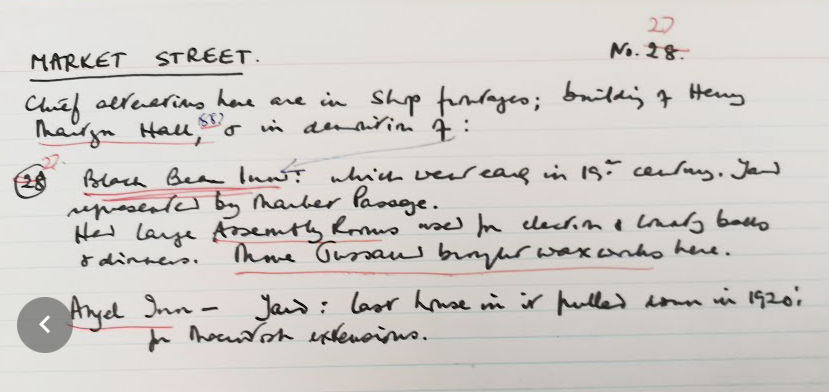 27
MARKET STREET. No. 28.
Chief alterations here are in shop frontages; building of Henry
Martyn Hall, 58? & in demolition of :
27.
28 Black Bear Inn: which went early in 19th century. Yard
represented by Market Passage.
Had large Assembly Rooms used for election & county balls
& dinners. Mme Tussaud brought waxworks here.
Angel Inn - Yard: last house in it pulled down in 1920s
for Macintosh extensions.